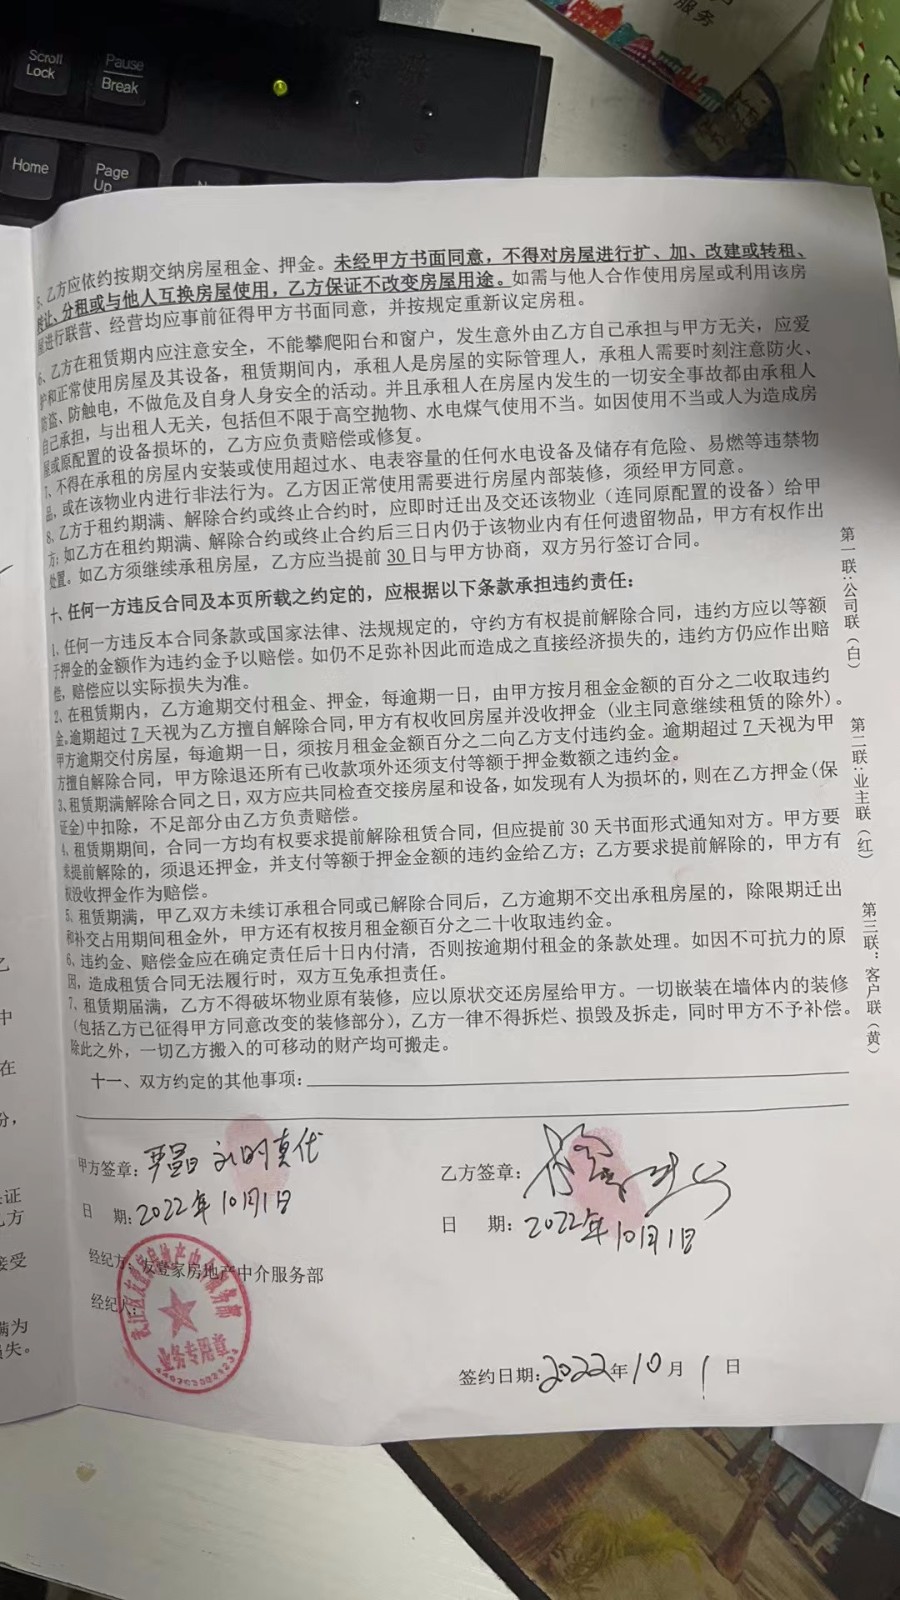 服务
Scroll
Lock
Pause
Break
Home
Page
Up
5、乙方应依约按期交纳房屋租金、押金。未经甲方书面同意，不得对房屋进行扩、加、改建或转租、
转让、分租或与他人互换房屋使用，乙方保证不改变房屋用途。如需与他人合作使用房屋或利用该房
屋进行联营、经营均应事前征得甲方书面同意，并按规定重新议定房租。
6、乙方在租赁期内应注意安全，不能攀爬阳台和窗户，发生意外由乙方自己承担与甲方无关，应爱
护和正常使用房屋及其设备，租赁期间内，承租人是房屋的实际管理人，承租人需要时刻注意防火、
防盗、防触电，不做危及自身人身安全的活动。并且承租人在房屋内发生的一切安全事故都由承租人
自己承担，与出租人无关，包括但不限于高空抛物、水电煤气使用不当。如因使用不当或人为造成房
屋或原配置的设备损坏的，乙方应负责赔偿或修复。
7、不得在承租的房屋内安装或使用超过水、电表容量的任何水电设备及储存有危险、易燃等违禁物
品，或在该物业内进行非法行为。乙方因正常使用需要进行房屋内部装修，须经甲方同意。
8、乙方于租约期满、解除合约或终止合约时，应即时迁出及交还该物业（连同原配置的设备）给甲
方；如乙方在租约期满、解除合约或终止合约后三日内仍于该物业内有任何遗留物品，甲方有权作出
处置。如乙方须继续承租房屋，乙方应当提前30日与甲方协商，双方另行签订合同。
十、任何一方违反合同及本页所载之约定的，应根据以下条款承担违约责任：
1、任何一方违反本合同条款或国家法律、法规规定的，守约方有权提前解除合同，违约方应以等额
于押金的金额作为违约金予以赔偿。如仍不足弥补因此而造成之直接经济损失的，违约方仍应作出赔
偿，赔偿应以实际损失为准。
2、在租赁期内，乙方逾期交付租金、押金，每逾期一日，由甲方按月租金金额的百分之二收取违约
金。逾期超过7天视为乙方擅自解除合同，甲方有权收回房屋并没收押金（业主同意继续租赁的除外）。
甲方逾期交付房屋，每逾期一日，须按月租金金额百分之二向乙方支付违约金。逾期超过7天视为甲
方擅自解除合同，甲方除退还所有已收款项外还须支付等额于押金数额之违约金。
3、租赁期满解除合同之日，双方应共同检查交接房屋和设备，如发现有人为损坏的，则在乙方押金（保
证金）中扣除，不足部分由乙方负责赔偿。
4、租赁期期间，合同一方均有权要求提前解除租赁合同，但应提前30天书面形式通知对方。甲方要
求提前解除的，须退还押金，并支付等额于押金金额的违约金给乙方；乙方要求提前解除的，甲方有
权没收押金作为赔偿。
5、租赁期满，甲乙双方未续订承租合同或已解除合同后，乙方逾期不交出承租房屋的，除限期迁出
和补交占用期间租金外，甲方还有权按月租金额百分之二十收取违约金。
6、违约金、赔偿金应在确定责任后十日内付清，否则按逾期付租金的条款处理。如因不可抗力的原
因，造成租赁合同无法履行时，双方互免承担责任。
7、租赁期届满，乙方不得破坏物业原有装修，应以原状交还房屋给甲方。一切嵌装在墙体内的装修
（包括乙方已征得甲方同意改变的装修部分），乙方一律不得拆烂、损毁及拆走，同时甲方不予补偿。
除此之外，一切乙方搬入的可移动的财产均可搬走。
十一、双方约定的其他事项：
甲方签章：
日 期：2022年10月1日
乙方签章：
日 期：2022年10月1日
经纪方：友登家房地产中介服务部
经纪人：
签约日期：2022年10月1日
第一联：公司联（白）
第二联：业主联（红）
第三联：客户联（黄）
乙
中
在
份，
证
方
接受
满为
损失。